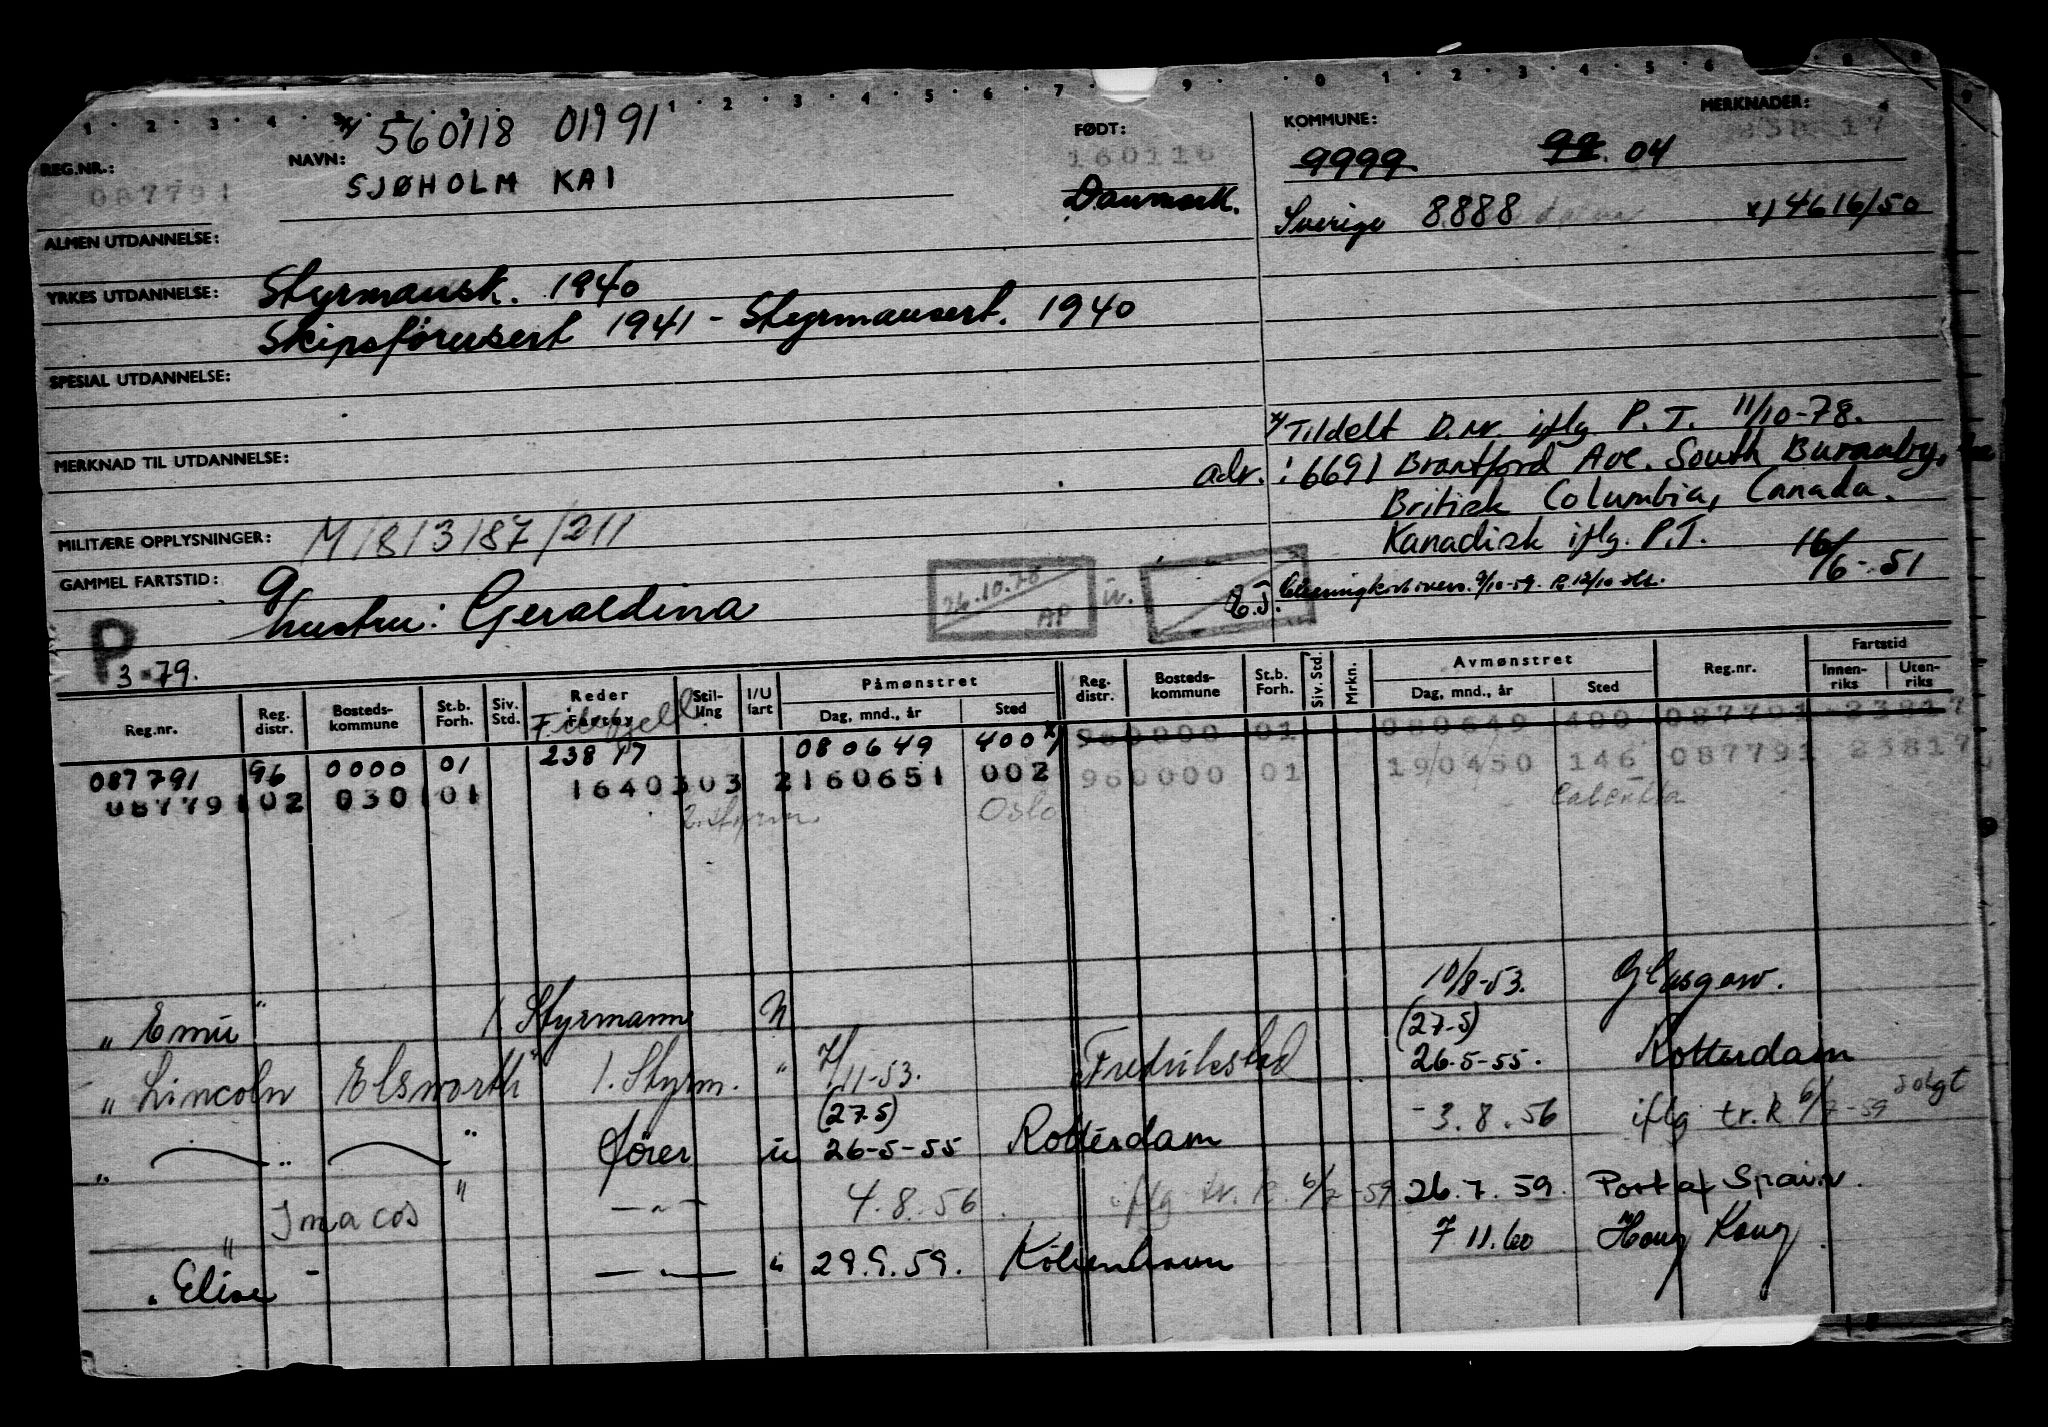 MERKNADER:
KOMMUNE:
FØDT:
x/ 560118 01991
NAVN: SJØHOLM KAI
REG.NR.: 087791
160118
Danmark.
9999 99. 04
Sverige 8888
x) 4616/50
ALMEN UTDANNELSE:
YRKES UTDANNELSE: Styrmansk. 1940
Skipsförersert 1941 - Styrmannsert. 1940
SPESIAL UTDANNELSE:
MERKNAD TIL UTDANNELSE:
x/ Tildelt D.nr. iflg P.T. 11/10-78.
adr.: 6691 Brantford Ave. South Burnaby,
British Columbia, Canada.
Kanadisk iflg. P.T. 16/6-51
MILITÆRE OPPLYSNINGER: M/8/3/87/211
GAMMEL FARTSTID: g
hustru: Geraldina
26.10.78
AP
P
3-79.
Reg.nr. Reg. distr. Bosteds-kommune St.b. Forh. Siv. Std. Reder Fartøy Stil-ling I/U fart Påmønstret Dag, mnd., år Sted Reg. distr. Bosteds-kommune St.b. Forh. Siv. Std. Mrkn. Avmønstret Dag, mnd., år Sted Reg.nr. Fartstid Innen-riks Uten-riks
Filefjell
087791 96 0000 01 23817 080649 400 x) 960000 01 080649 400 087791 23817
087791 02 0301 01 1640303 2 160651 002 960000 01 190450 146 087791 23817
2. styrm. Oslo Calcutta
10/8-53. Glasgow.
" Emu " 1. Styrmann u
(27-5)
" Lincoln Elsworth " 1. Styrm. " 7/11-53. Fredrikstad 26-5-55. Rotterdam
(27-5)
" " " fører u 26-5-55 Rotterdam - 3.8.56 iflg tr.k 6/7-59 solgt
" Imacos " - " - 4.8.56. iflg tr. k. 6/7-59 26.7.59. Port of Spain.
" Elise " — " — " 29.9.59. København 7 11.60 Hong Kong.